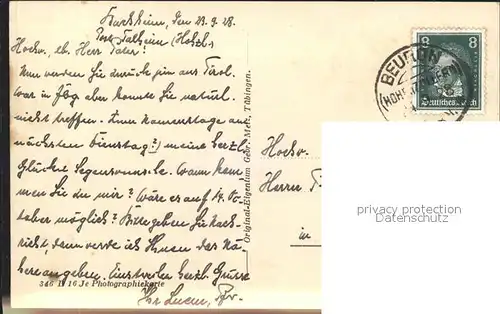 den 23.9.28.
Post Talheim
Hochw. lb. Herr Pater!
Nun werden Sie zurück sein aus Tirol.
War in aber konnte Sie natürl.
nicht treffen. Zum Namenstage am
nächsten Dienstag? meine herzl.
Glück & Segenswünsche. Wann kom-
men Sie zu mir? Wäre es auf 14. Ok-
tober möglich? Bitte geben Sie Nach-
richt, dann werde ich Ihnen das Nä-
here angeben. Einstweilen herzl. Grüsse
Ihr
346 B 16 Je Photographiekarte
Original-Eigentum Gebr. Metz, Tübingen.
Hochw.
Herrn
in
8 8
Deutsches Reich
BEURON
(HOHENZOLLERN)
privacy protection
Datenschutz